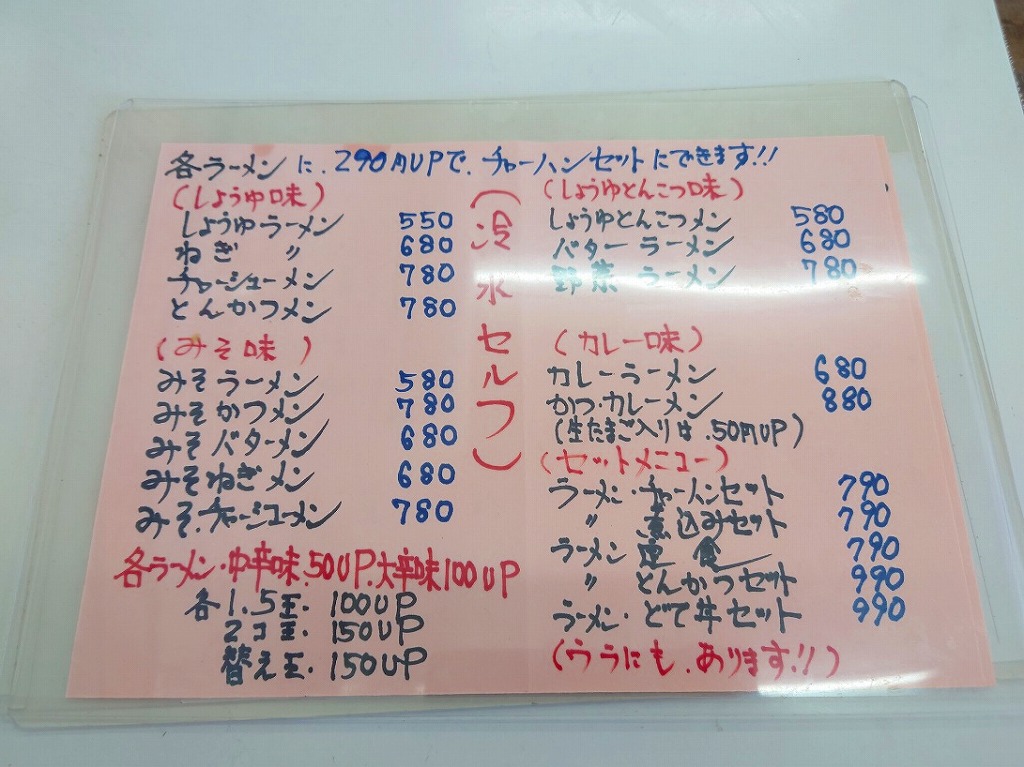 各ラーメンに.290円UPで.チャーハンセットにできます!!
(しょうゆ味)
しょうゆラーメン 550
ねぎ 〃 680
チャーシューメン 780
とんかつメン 780
(みそ味)
みそラーメン 580
みそかつメン 780
みそバターメン 680
みそねぎメン 680
みそ.チャーシューメン 780
各ラーメン・中辛味.50UP.大辛味100UP
各1.5玉. 100UP
2コ玉. 150UP
替え玉. 150UP
(冷水セルフ)
(しょうゆとんこつ味)
しょうゆとんこつメン 580
バターラーメン 680
野菜ラーメン 780
(カレー味)
カレーラーメン 680
かつ.カレーメン 880
(生たまご入りは.50円UP)
(セットメニュー)
ラーメン・チャーハンセット 790
〃 煮込みセット 790
ラーメン 定食 790
〃 とんかつセット 990
ラーメン・どて丼セット 990
(ウラにも.あります!!)